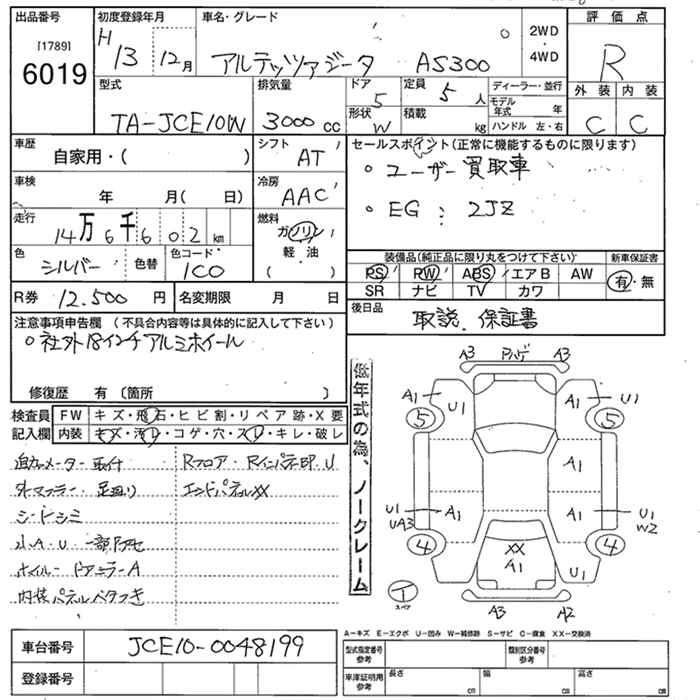 出品番号 初度登録年月 車名・グレード 評価点
[1789]
6019
H 13 12月 アルテッツァジータ AS300 2WD・4WD R
型式 排気量 ドア 定員 ディーラー・並行 外装 内装
TA-JCE10W 3000cc 5 5人 モデル年式 年
形状 W 積載 kg ハンドル 左・右 C C
車歴 シフト セールスポイント(正常に機能するものに限ります)
自家用・( ) AT
・ユーザー買取車
車検 冷房
年 月( 日) AAC
・EG : 2JZ
走行 燃料
14万6千602km ガソリン
軽・油
( )
色 色コード
シルバー 色替 1C0
装備品(純正品に限り丸をつけて下さい) 新車保証書
PS PW ABS エアB AW 有・無
SR ナビ TV カワ
R券 12.500円 名変期限 月 日
後日品 取説、保証書
注意事項申告欄 (不具合内容等は具体的に記入して下さい)
・社外18インチアルミホイール
修復歴 有 〔箇所 〕
検査員 FW キズ・飛石・ヒビ割・リペア跡・X要
記入欄 内装 キズ・汚レ・コゲ・穴・スレ・キレ・破レ
追加メーター取付 Rフロア・Rインパネ凹、U
外マフラー・足廻り エンドパネルXX
シートシミ
小A・U 一部タッセ
ホイル・ドアミラーA
内装パネルベタつき
低年式の為、ノークレーム
A3 A3
A1 U1 A1 U1
5 5
A1
U1 A1 A1 U1
UA3 W2
4 4
XX
A1 U1
A3 A2
T
スペア
車台番号 JCE10-0048199
登録番号
A-キズ E-エクボ U-凹み W-補修跡 S-サビ C-腐食 XX-交換済
型式指定番号 参考 類別区分番号 参考
車庫証明用 参考 長さ cm 幅 cm 高さ cm